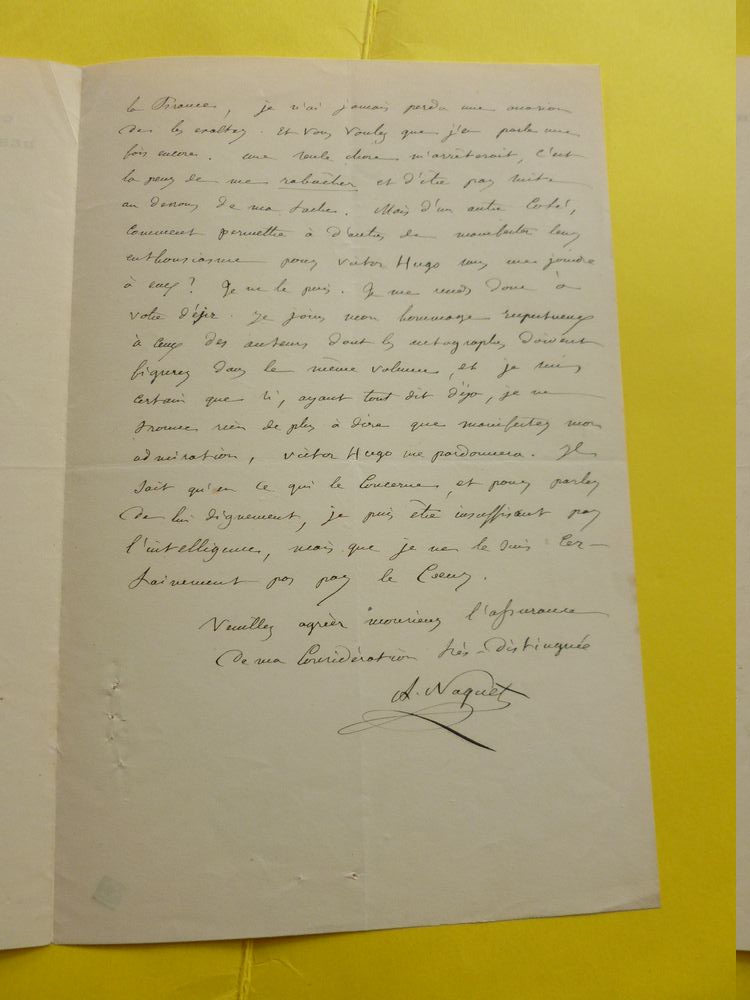 la France, je n'ai jamais perdu une occasion
de les exalter. Et vous voulez que j'en parle une
fois encore. une seule chose m'arrêterait, c'est
la peur de me rabacher et d'être par suite
au dessous de ma tache. Mais d'un autre Coté,
Comment permettre à d'autres de manifester leur
enthousiasme pour Victor Hugo sans me joindre
à eux? Je ne le puis. Je me rends donc à
votre désir. Je joins mon hommage respectueux
à ceux des auteurs dont les autographes doivent
figurer dans le même volume, et je suis
Certain que si, ayant tout dit déjà, je ne
trouve rien de plus à dire que manifester mon
admiration, Victor Hugo me pardonnera. Il
sait qu'en ce qui le Concerne, et pour parler
de lui dignement, je puis être insuffisant par
l'intelligence, mais que je ne le suis Cer-
tainement pas par le Coeur.
Veuillez agréer monsieur l'assurance
de ma Considération très-distinguée
A. Naquet